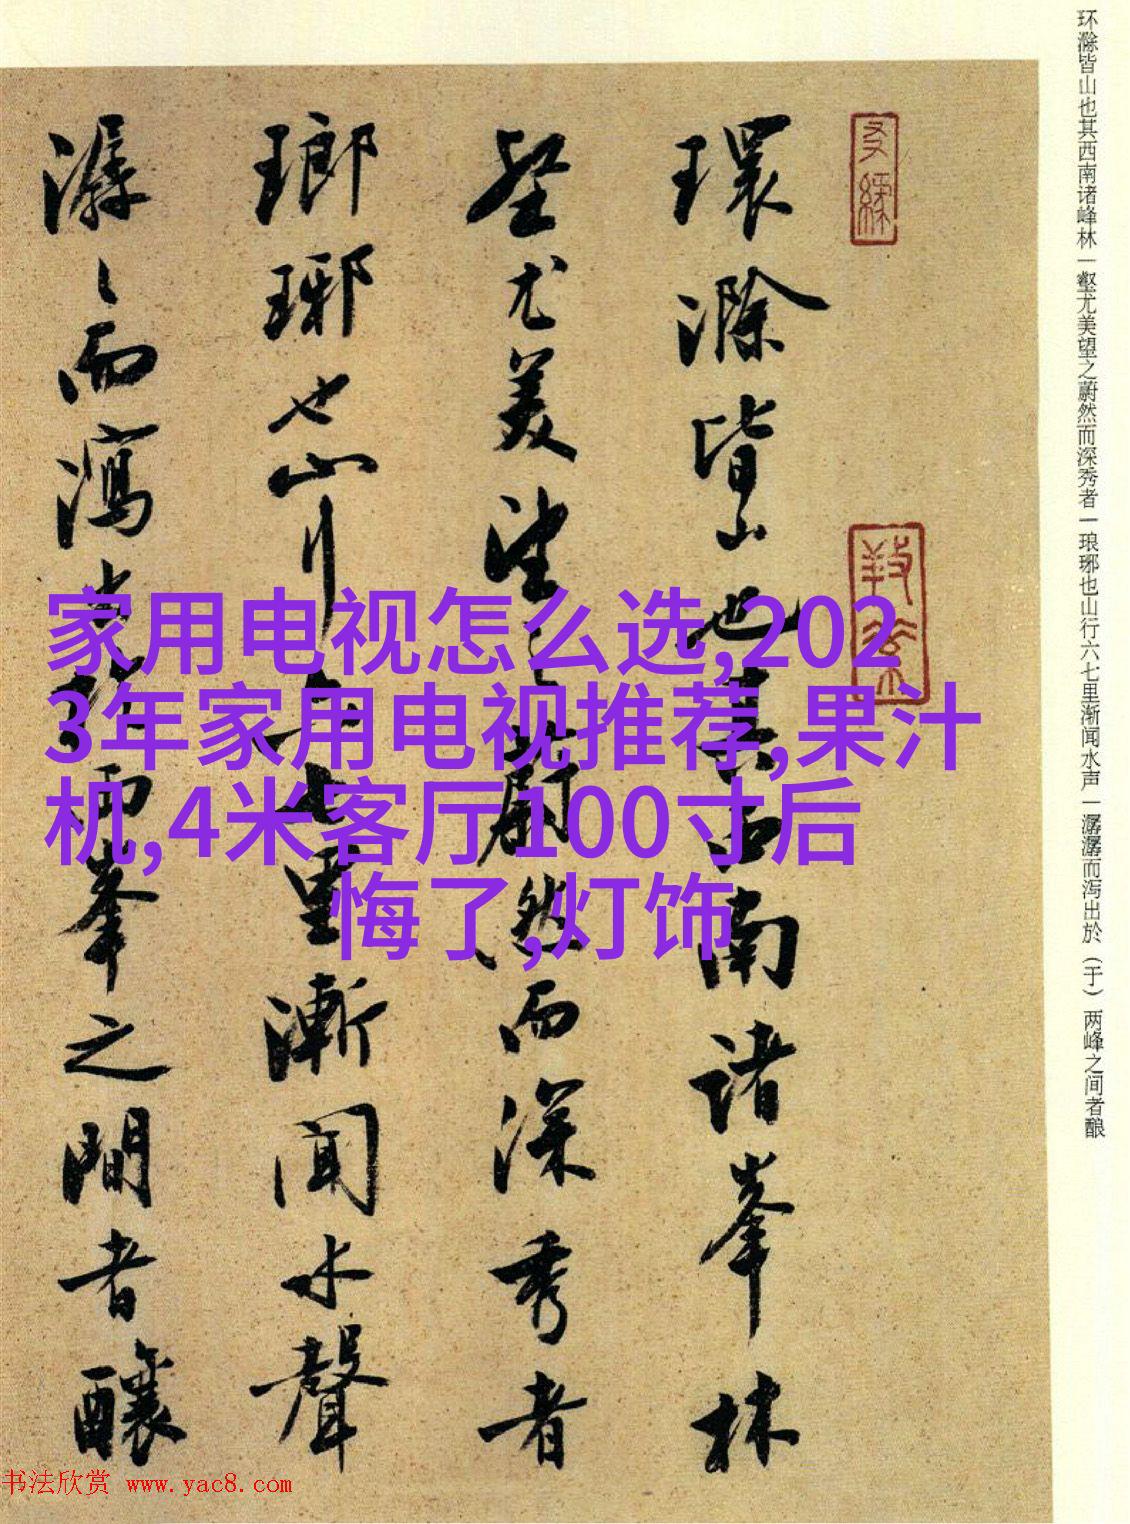 环滁皆山也其西南诸峰林一壑尤美望之蔚然而深秀者一琅琊也山行六七里渐闻水声一潺潺而泻出於（于）两峰之间者酿
環滁皆山也其西南諸峯林
壑尤美望之蔚然而深秀者
瑯琊也山行六七里漸聞水聲
潺〻而瀉出於兩峯之間者釀
家用电视怎么选,202
3年家用电视推荐,果汁
机,4米客厅100寸后
悔了,灯饰
书法欣赏 www.yac8.com